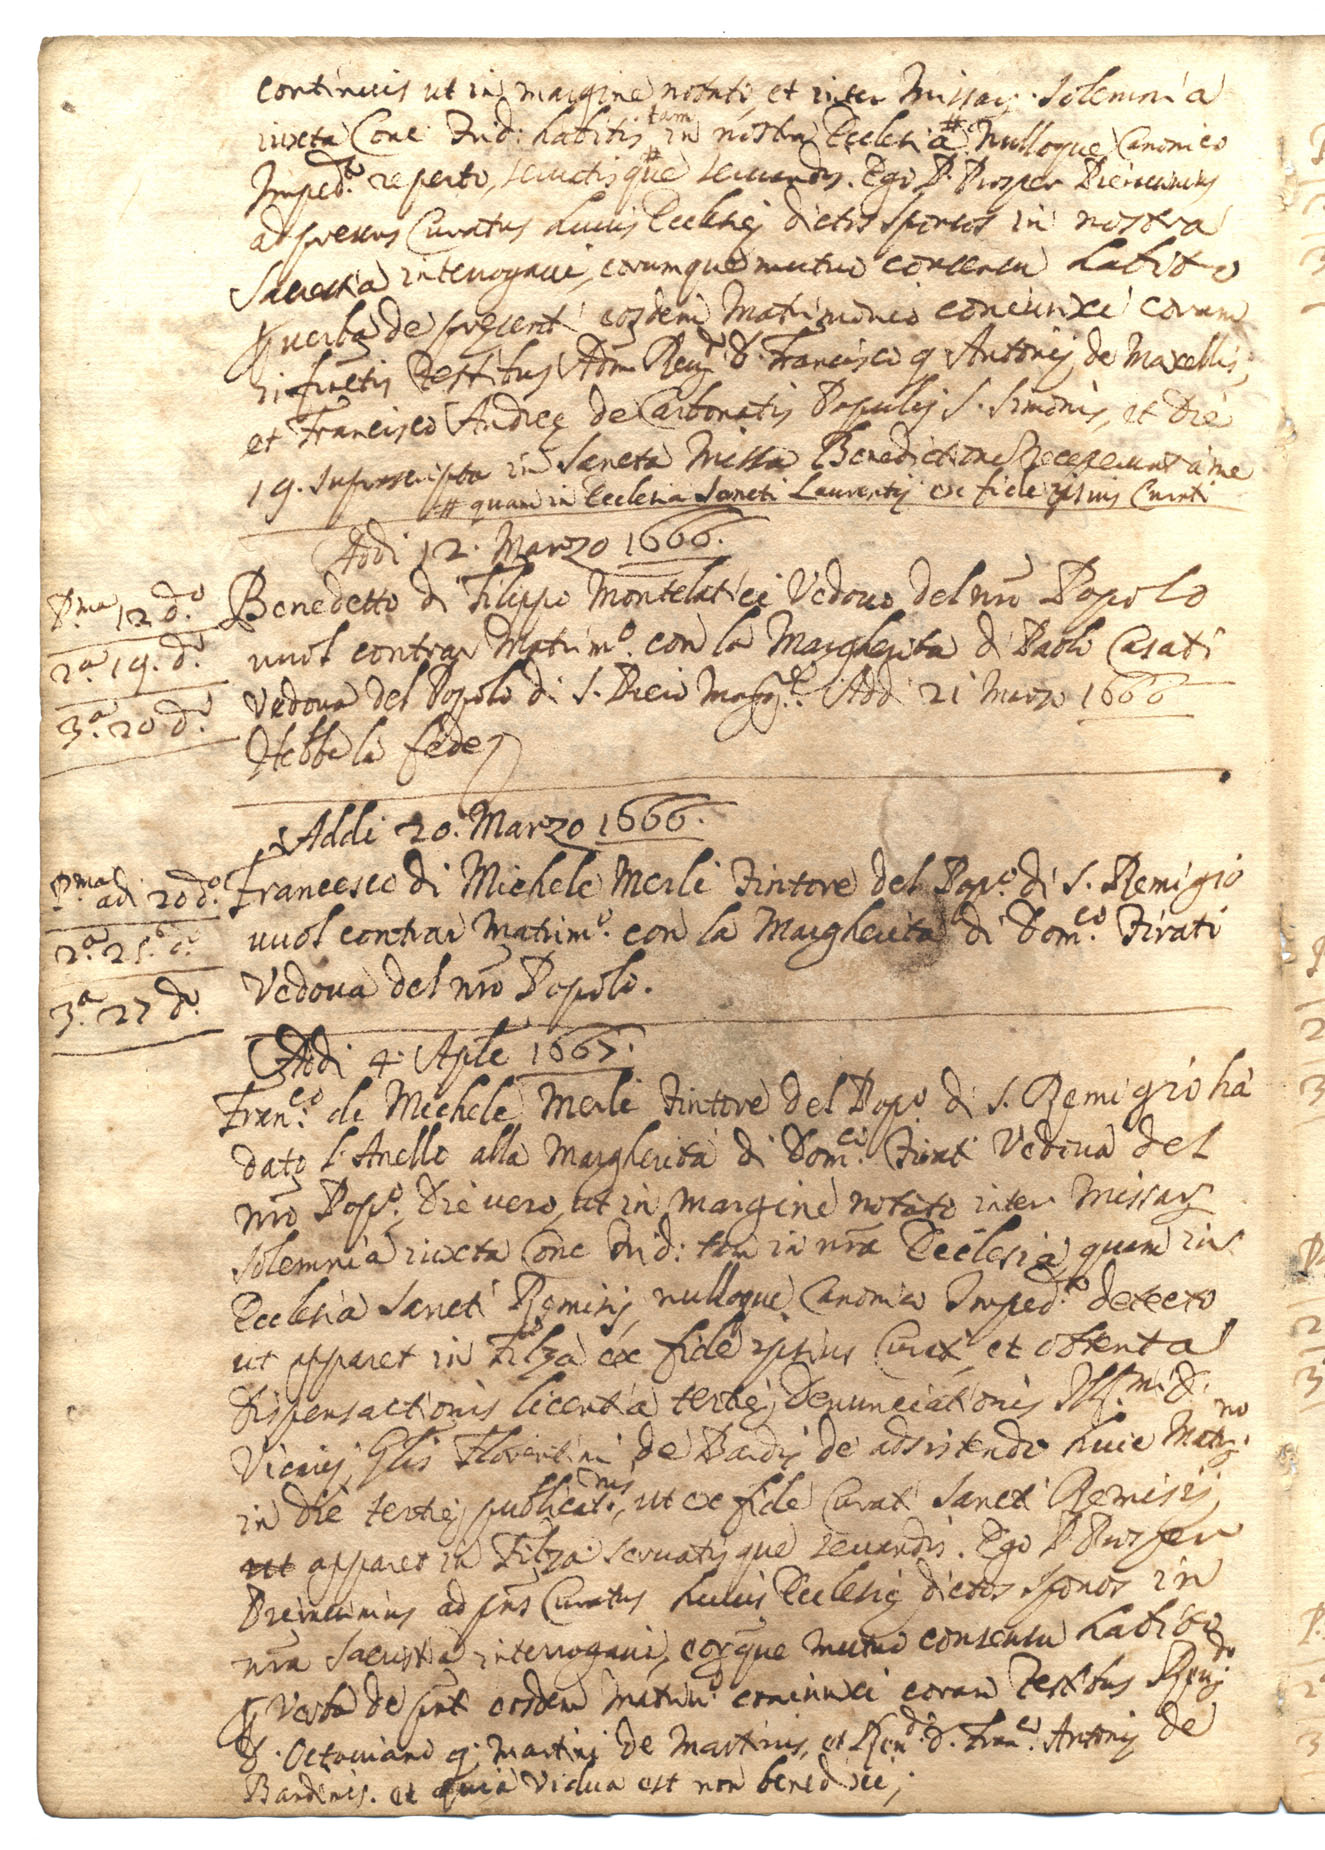 continuis ut in margine notati, et inter Missarz. Solemnia
iuxta Conc. Trid: habitis tam in nostra Ecclesia # nulloque Canonico
Imped.to reperto, seruatisque seruandis. Ego P. Prosper Pierucinius
ad presens Curatus huius Ecclesię dictos sponsos in nostra
Sacrestia interrogaui, eorumque mutuo consensu habito
p uerba de presenti eosdem Matrimonio coniunxi coram
infrittis Testibus Adm Reu.do D. Francisco q Antonij de Macellis,
et Francisco Andreę de Carbonatis Populi S. Simonis, et Die
19. suprascripta in Sancta Missa Benedictione Receperunt à me
# quam in Ecclesia Sancti Laurentij ex fide ipsius Curati
Addi 12. Marzo 1666.
P.ma 12 d.o
2.a 19. d.o
3.a 20 d.o
Benedetto di Filippo Montelatici Vedouo del nro Popolo
uuol contrar Matrim.o con la Margherita di Paolo Casati
Vedoua del Popolo di S. Piero Magg.re Addi 21 Marzo 1666
Hebbe la fede
Addi 20. Marzo 1666.
P.ma adi 20 d.o
2.a 25. d.o
3.a 27 d.o
Francesco di Michele Merli Tintore del Pop.o di S. Remigio
uuol contrar Matrim.o con la Margherita di Dom.co Tirati
Vedoua del nro Popolo.
Addi 4. Aple 1667.
Fran.co di Michele Merli Tintore del Popo di S. Remigio hà
dato l'Anello alla Margherita di Dom.co Tirati Vedoua del
nro Pop.o, Die uero, ut in margine notato inter Missarz
Solemnia iuxta Conc Trid: tam in nra Ecclesia, quam in
Ecclesia Sancti Remisij, nulloque Canonico Imped.to detecto
ut apparet in Filza ex fide ipsius Curati, et obtenta
dispensactionis licentia tertię denunciationis Ill.mi D.
Vicarij Glis Florentini de Bardis de adsistendo huic Matr.no
in Die tertię publicat.nis, ut ex fide Curati Sancti Remisij
ut apparet in Filza seruatisque seruandis. Ego P. Prosper
Pierucinius ad pns Curatus huius Ecclesię dictos sponsos in
nra Sacrestia interrogaui, eorque mutuo consensu habito
p Verba de pnti eosdem Matrim.o coniunxi coram Testibus Reu.do
D. Octauiano q: Martini de Martinis, et Reu.do D. Fran.co Antonij de
Bardinis. et quia Vidua est non benedixi;